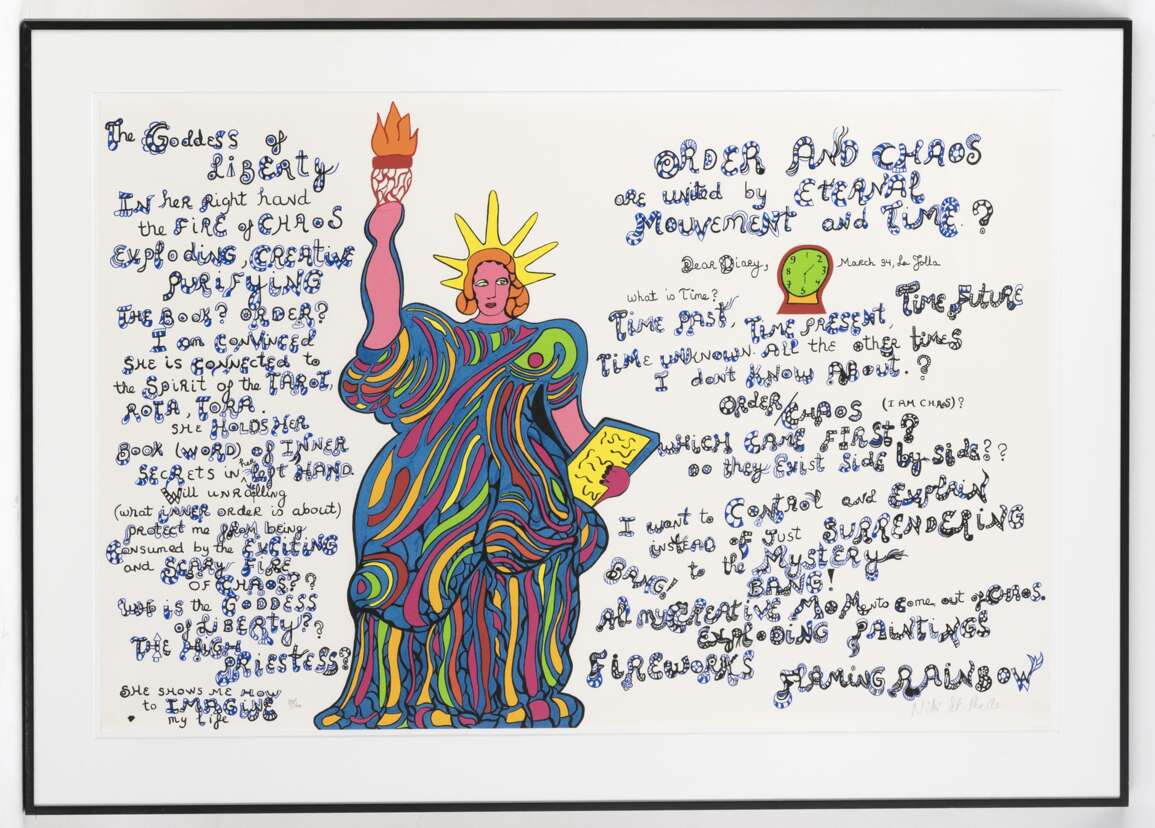 The Goddess of
LIBERTY
IN her Right hand
the FIRE of CHAOS
Exploding, CREATIVE
PURIFYING
THE BOOK? ORDER?
I am CONVINCED
SHE is CONNECTED to
the SPIRIT of the TAROT,
ROTA, TORA.
SHE HOLDS HER
BOOK (WORD) of INNER
SECRETS in her left HAND.
Will UNRAVELLING
(what INNER ORDER is about)
PROTECT me FROM being
Consumed by the EXCITING
and SCARY FIRE
OF CHAOS??
WHO is the GODDESS
of LIBERTY??
THE HIGH
PRIESTESS?
SHE SHOWS ME HOW
to IMAGINE
my life
ORDER AND CHAOS
are united by ETERNAL
MOUVEMENT and TIME?
Dear Diary,
March 94, La Jolla
9 1 2 8 3 7 6 5
What is Time?
TIME PAST, TIME PRESENT, TIME FUTURE
TIME UNKNOWN. All the other times
I don't KNOW ABOUT.?
ORDER/CHAOS (I AM CHAOS)?
WHICH CAME FIRST?
DO they EXIST SIDE by SIDE??
I want to CONTROL and EXPLAIN
INSTEAD OF JUST SURRENDERING
to the MYSTERY
BANG! BANG!
All my CREATIVE MOMents come out of CHAOS.
EXPLODING PAINTINGS
FIREWORKS FLAMING RAINBOW
Niki de St Phalle